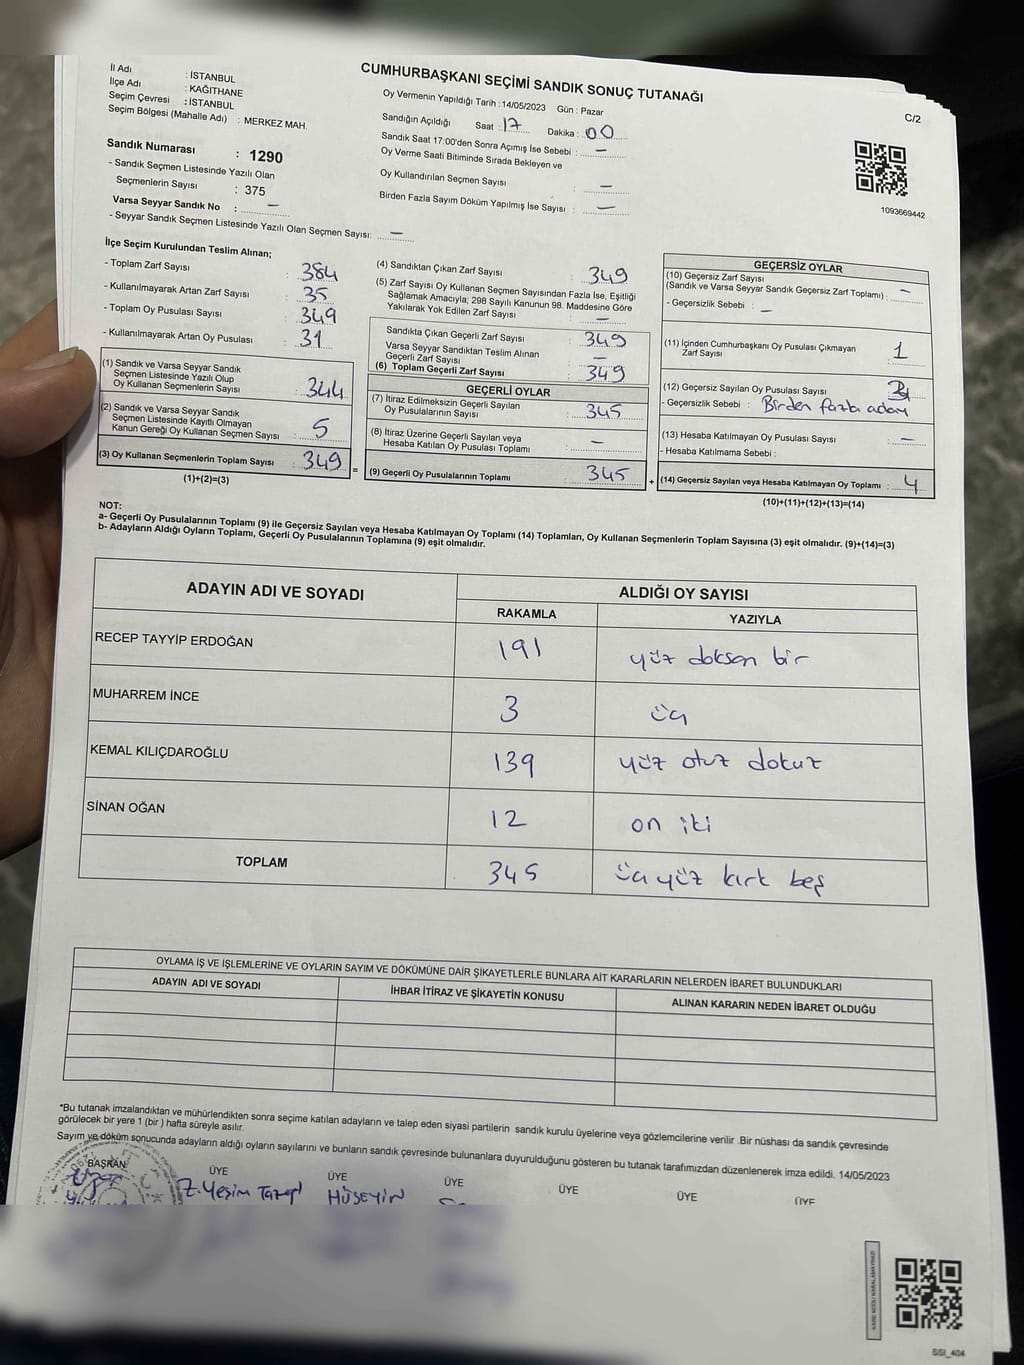 CUMHURBAŞKANI SEÇİMİ SANDIK SONUÇ TUTANAĞI
C/2
İl Adı : İSTANBUL
İlçe Adı : KAĞITHANE
Seçim Çevresi : İSTANBUL
Seçim Bölgesi (Mahalle Adı) : MERKEZ MAH.
Sandık Numarası : 1290
- Sandık Seçmen Listesinde Yazılı Olan
Seçmenlerin Sayısı : 375
Varsa Seyyar Sandık No : –
- Seyyar Sandık Seçmen Listesinde Yazılı Olan Seçmen Sayısı: –
Oy Vermenin Yapıldığı Tarih :14/05/2023 Gün : Pazar
Sandığın Açıldığı Saat : 17 Dakika : 00
Sandık Saat 17:00'den Sonra Açımış İse Sebebi : –
Oy Verme Saati Bitiminde Sırada Bekleyen ve
Oy Kullandırılan Seçmen Sayısı : –
Birden Fazla Sayım Döküm Yapılmış İse Sayısı : –
1093669442
İlçe Seçim Kurulundan Teslim Alınan;
- Toplam Zarf Sayısı : 384
- Kullanılmayarak Artan Zarf Sayısı : 35
- Toplam Oy Pusulası Sayısı : 349
- Kullanılmayarak Artan Oy Pusulası : 31
(1) Sandık ve Varsa Seyyar Sandık
Seçmen Listesinde Yazılı Olup
Oy Kullanan Seçmenlerin Sayısı : 344
(2) Sandık ve Varsa Seyyar Sandık
Seçmen Listesinde Kayıtlı Olmayan
Kanun Gereği Oy Kullanan Seçmen Sayısı : 5
(3) Oy Kullanan Seçmenlerin Toplam Sayısı : 349
(1)+(2)=(3)
=
(4) Sandıktan Çıkan Zarf Sayısı : 349
(5) Zarf Sayısı Oy Kullanan Seçmen Sayısından Fazla İse, Eşitliği
Sağlamak Amacıyla; 298 Sayılı Kanunun 98. Maddesine Göre
Yakılarak Yok Edilen Zarf Sayısı : –
Sandıkta Çıkan Geçerli Zarf Sayısı : 349
Varsa Seyyar Sandıktan Teslim Alınan
Geçerli Zarf Sayısı : –
(6) Toplam Geçerli Zarf Sayısı : 349
GEÇERLİ OYLAR
(7) İtiraz Edilmeksizin Geçerli Sayılan
Oy Pusulalarının Sayısı : 345
(8) İtiraz Üzerine Geçerli Sayılan veya
Hesaba Katılan Oy Pusulası Toplamı : –
(9) Geçerli Oy Pusulalarının Toplamı : 345
+
GEÇERSİZ OYLAR
(10) Geçersiz Zarf Sayısı
(Sandık ve Varsa Seyyar Sandık Geçersiz Zarf Toplamı) : –
- Geçersizlik Sebebi : –
(11) İçinden Cumhurbaşkanı Oy Pusulası Çıkmayan
Zarf Sayısı : 1
(12) Geçersiz Sayılan Oy Pusulası Sayısı :
- Geçersizlik Sebebi : Birden fazla aday
(13) Hesaba Katılmayan Oy Pusulası Sayısı : –
- Hesaba Katılmama Sebebi :
(14) Geçersiz Sayılan veya Hesaba Katılmayan Oy Toplamı : 4
(10)+(11)+(12)+(13)=(14)
NOT:
a- Geçerli Oy Pusulalarının Toplamı (9) ile Geçersiz Sayılan veya Hesaba Katılmayan Oy Toplamı (14) Toplamları, Oy Kullanan Seçmenlerin Toplam Sayısına (3) eşit olmalıdır. (9)+(14)=(3)
b- Adayların Aldığı Oyların Toplamı, Geçerli Oy Pusulalarının Toplamına (9) eşit olmalıdır.
ADAYIN ADI VE SOYADI ALDIĞI OY SAYISI
RAKAMLA YAZIYLA
RECEP TAYYİP ERDOĞAN 191 yüz doksan bir
MUHARREM İNCE 3 üç
KEMAL KILIÇDAROĞLU 139 yüz otuz dokuz
SİNAN OĞAN 12 on iki
TOPLAM 345 üç yüz kırk beş
OYLAMA İŞ VE İŞLEMLERİNE VE OYLARIN SAYIM VE DÖKÜMÜNE DAİR ŞİKAYETLERLE BUNLARA AİT KARARLARIN NELERDEN İBARET BULUNDUKLARI
ADAYIN ADI VE SOYADI İHBAR İTİRAZ VE ŞİKAYETİN KONUSU ALINAN KARARIN NEDEN İBARET OLDUĞU
*Bu tutanak imzalandıktan ve mühürlendikten sonra seçime katılan adayların ve talep eden siyasi partilerin sandık kurulu üyelerine veya gözlemcilerine verilir .Bir nüshası da sandık çevresinde
görülecek bir yere 1 (bir ) hafta süreyle asılır.
Sayım ve döküm sonucunda adayların aldığı oyların sayılarını ve bunların sandık çevresinde bulunanlara duyurulduğunu gösteren bu tutanak tarafımızdan düzenlenerek imza edildi. 14/05/2023
BAŞKAN ÜYE ÜYE ÜYE ÜYE ÜYE ÜYE
Z. Yeşim HÜSEYİN
SSI_404